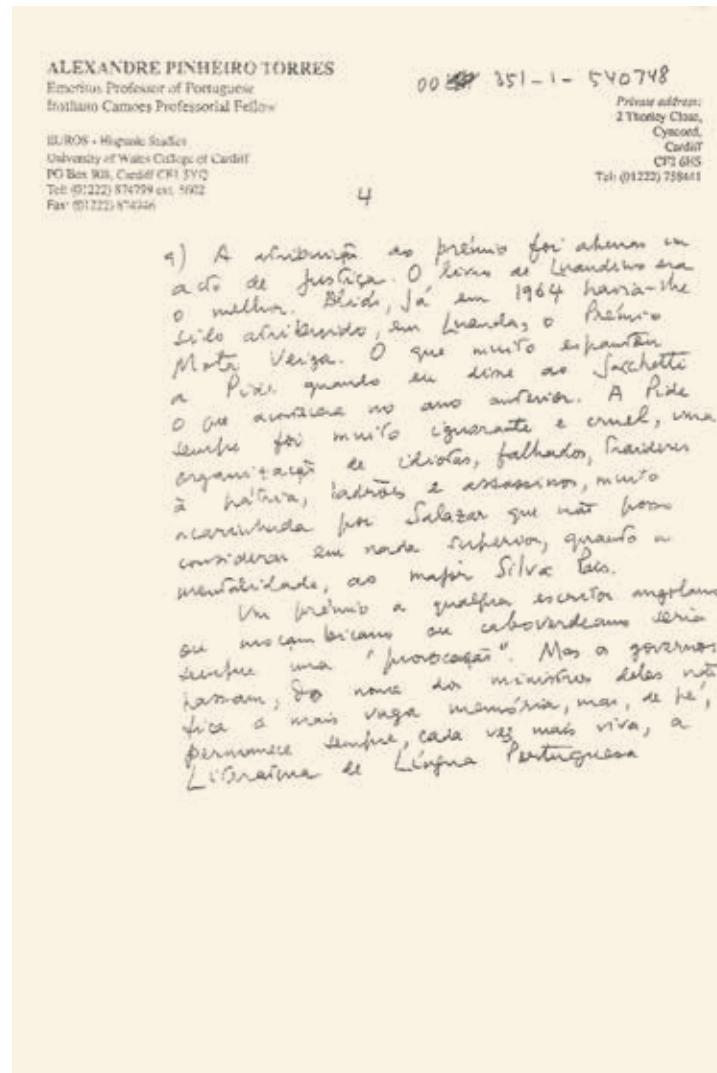 ALEXANDRE PINHEIRO TORRES
Emeritus Professor of Portuguese
Instituto Camoes Professorial Fellow
00 351-1-540748
Private address:
2 Thorley Close,
Cyncoed,
Cardiff
CF2 6HS
Tel: (01222) 758441
EUROS - Hispanic Studies
University of Wales College of Cardiff
PO Box 908, Cardiff CF1 3YQ
Tel: (01222) 874799 ext. 5602
Fax: (01222) 874946
4
9) A atribuição do prémio foi apenas um
acto de justiça. O livro de Luandino era
o melhor. Aliás, já em 1964 havia-lhe
sido atribuído, em Luanda, o Prémio
Mota Veiga. O que muito espantou
a Pide quando eu disse ao Sacchetti
o que acontecera no ano anterior. A Pide
sempre foi muito ignorante e cruel, uma
organização de idiotas, falhados, traidores
à pátria, ladrões e assassinos, muito
acarinhada por Salazar que não posso
considerar em nada superior, quanto a
mentalidade, ao major Silva Pais.
Um prémio a qualquer escritor angolano
ou moçambicano ou caboverdeano seria
sempre uma "provocação". Mas os governos
passam, do nome dos ministros deles não
fica a mais vaga memória, mas, de pé,
permanece sempre, cada vez mais viva, a
Literatura de Língua Portuguesa